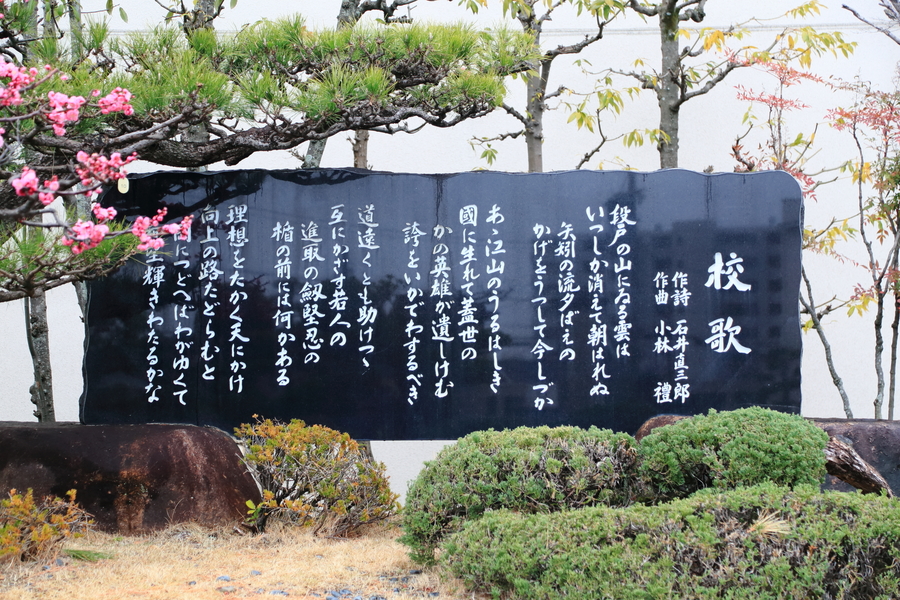 校歌
作詩 石井直三郎
作曲 小林 禮
段戸の山にゐる雲は
いつしか消えて朝はれぬ
矢矧の流夕ばえの
かげをうつして今しづか
あゝ江山のうるはしき
國に生れて蓋世の
かの英雄が遺しけむ
誇をいかでわするべき
道遠くとも助けつゝ
互にかざす若人の
進取の劔堅忍の
楯の前には何かある
理想をたかく天にかけ
向上の路たどらむと
につどへばわがゆくて
輝きわたるかな